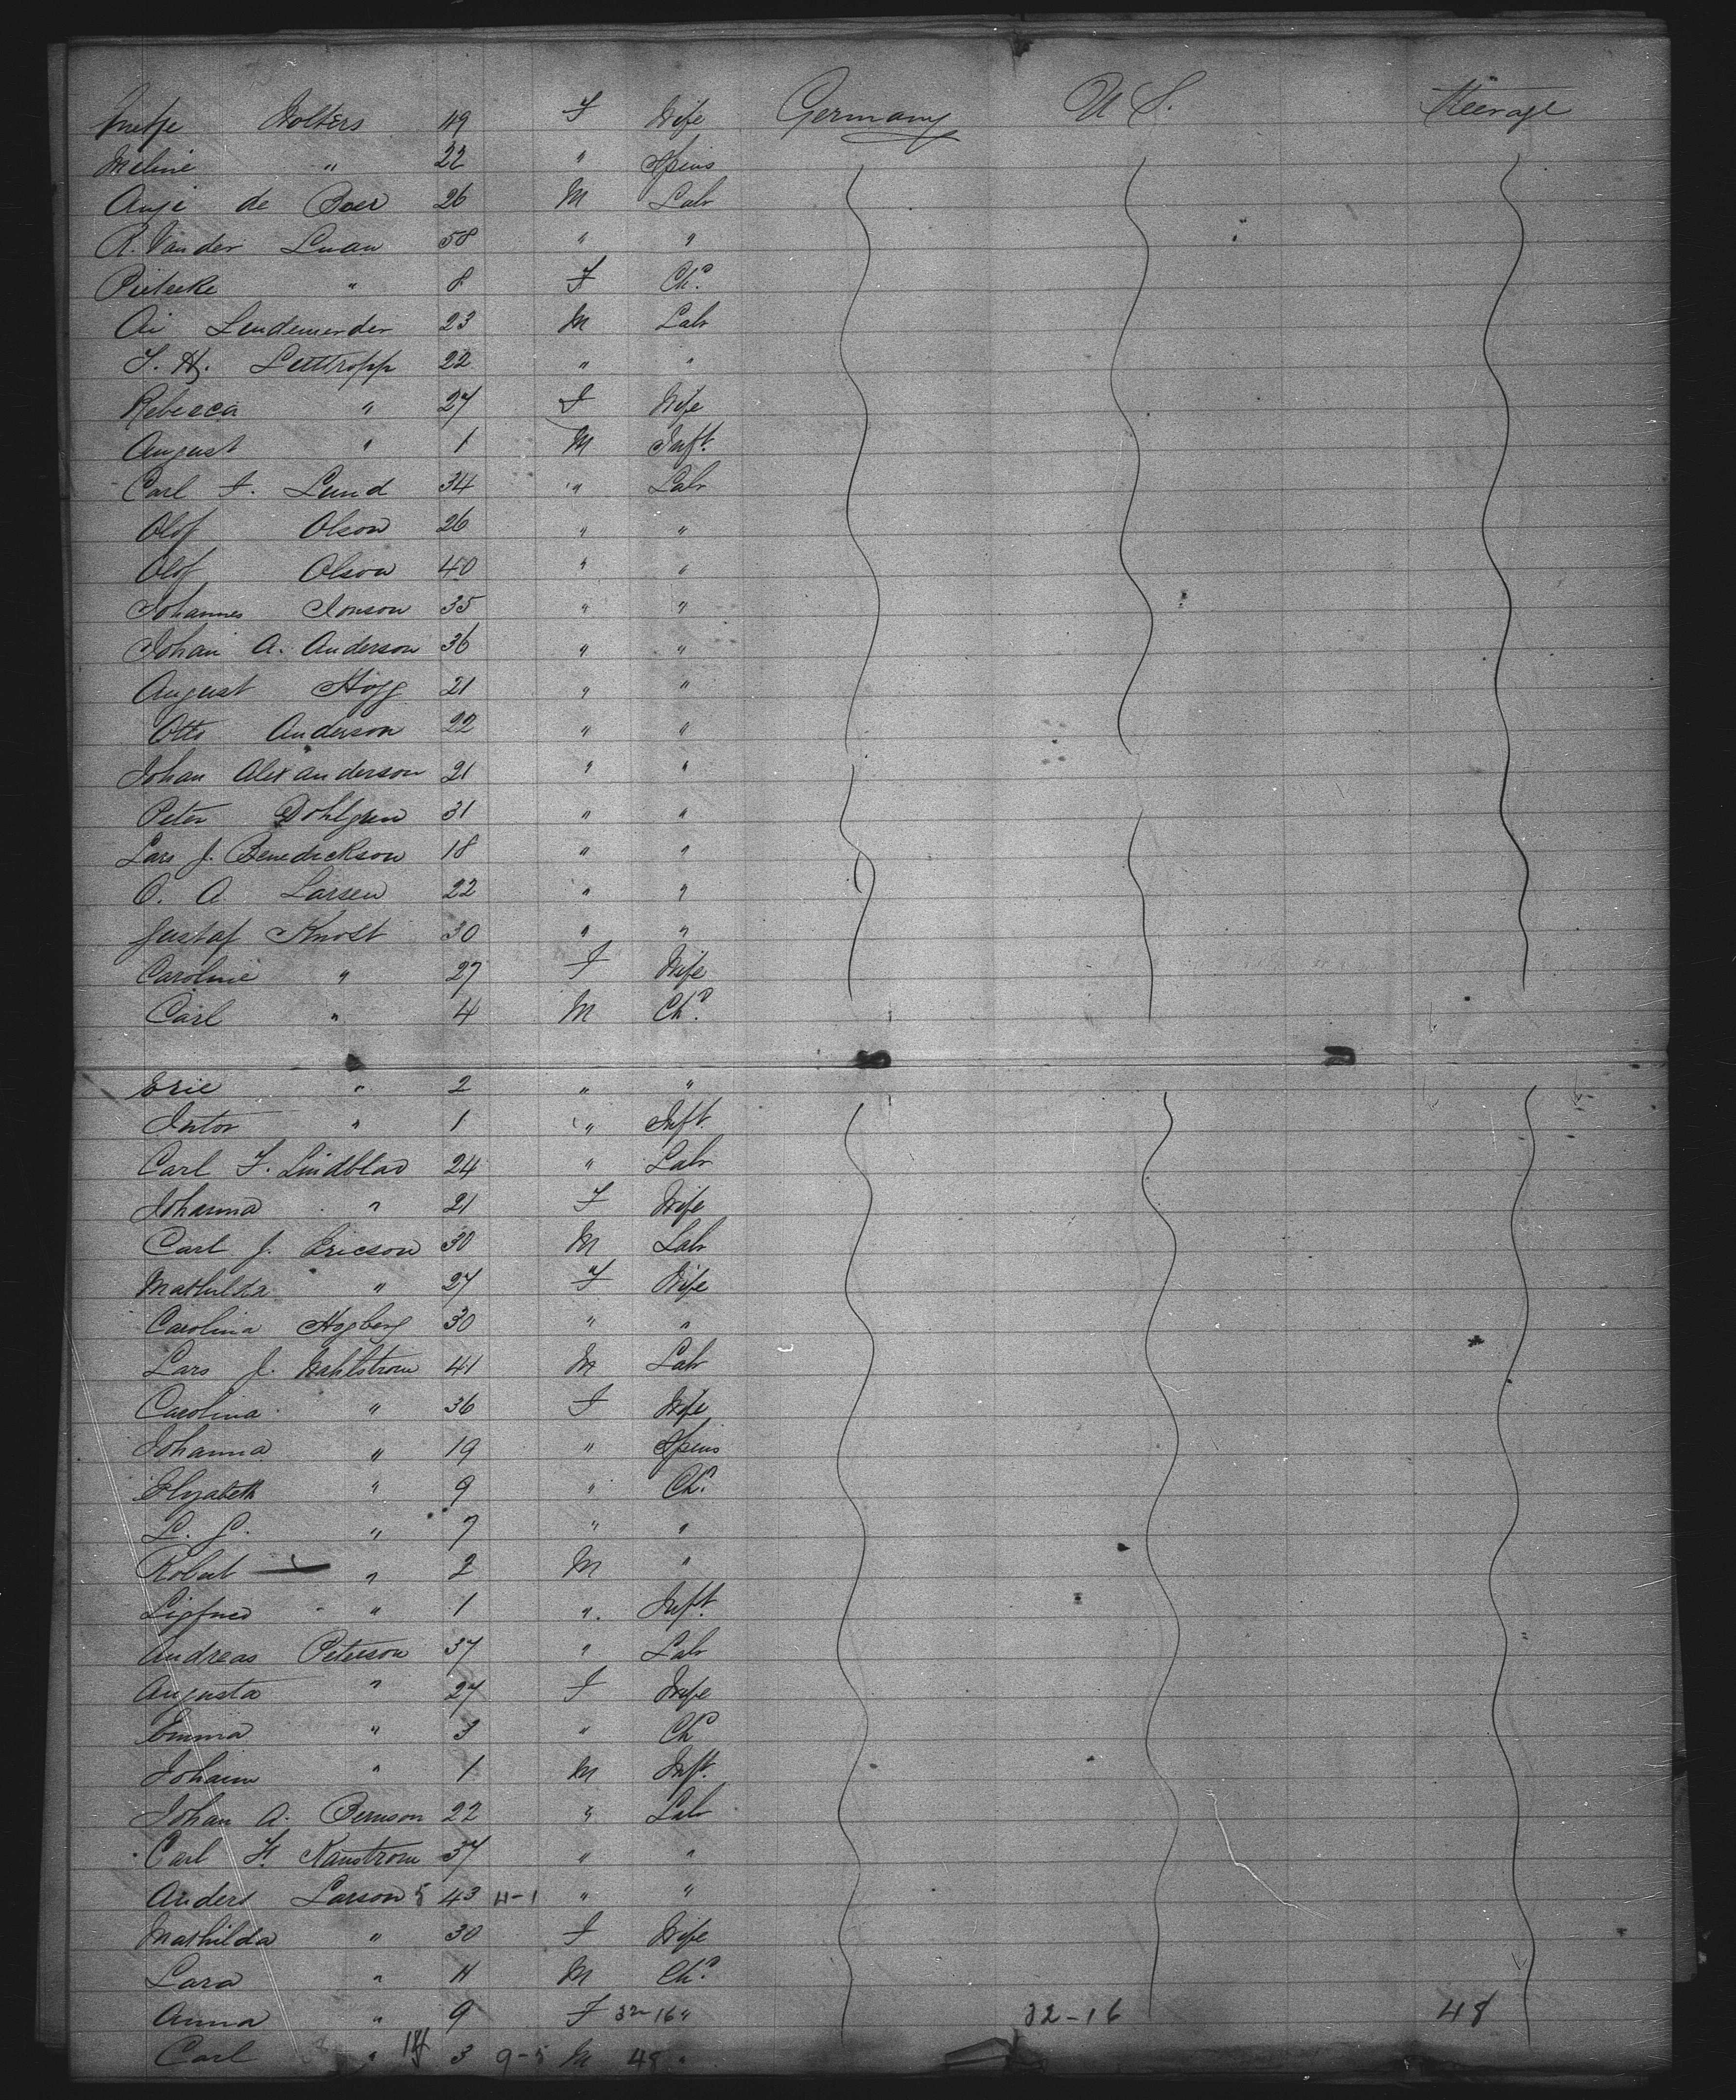 Wolters 49 F Wife Germany U S. Steerage
Meline " 22 " Spins
Anje de Boer 26 M Labr
R. Van der Luan 58 " "
Pieterke " 8 F Chd
Ai Lendemerder 23 M Labr
J. H. Luttropp 22 " "
Rebecca " 27 F Wife
August " 1 M Inft.
Carl F. Lund 34 " Labr
Olof Olson 26 " "
Olof Olson 40 " "
Johannes Jonson 35 " "
Johan A. Anderson 36 " "
August Hogg 21 " "
Otto Anderson 22 " "
Johan Alexanderson 21 " "
Peter Dohlgren 31 " "
Lars J. Benedickson 18 " "
O. A. Larsen 22 " "
Gustaf Knost 30 " "
Caroline " 27 F Wife
Carl " 4 M Chd
Eric " 2 " "
" 1 " Inft.
Carl F. Lindblad 24 " Labr
Johanna " 21 F Wife
Carl J. Ericson 30 M Labr
Mathilda " 27 F Wife
Carolina Hogberg 30 " "
Lars J. Wahlstrom 41 M Labr
Carolina " 36 F Wife
Johanna " 19 " Spins
Elyzabeth " 9 " Chd
L. S. " 7 " "
Robert " 2 M "
Sigfried " 1 " Inft.
Andreas Peterson 37 " Labr
Augusta " 27 F Wife
Emma " 3 " Chd
Johann " 1 M Inft.
Johan A. Bernson 22 " Labr
Carl F. Kanstrom 37 " "
Anders Larson 5 43 4-1 " "
Mathilda " 30 F Wife
Lara " 11 M Chd
Anna " 9 F 32-16 " 32-16 48
Carl " 3 9-5 M 48 "